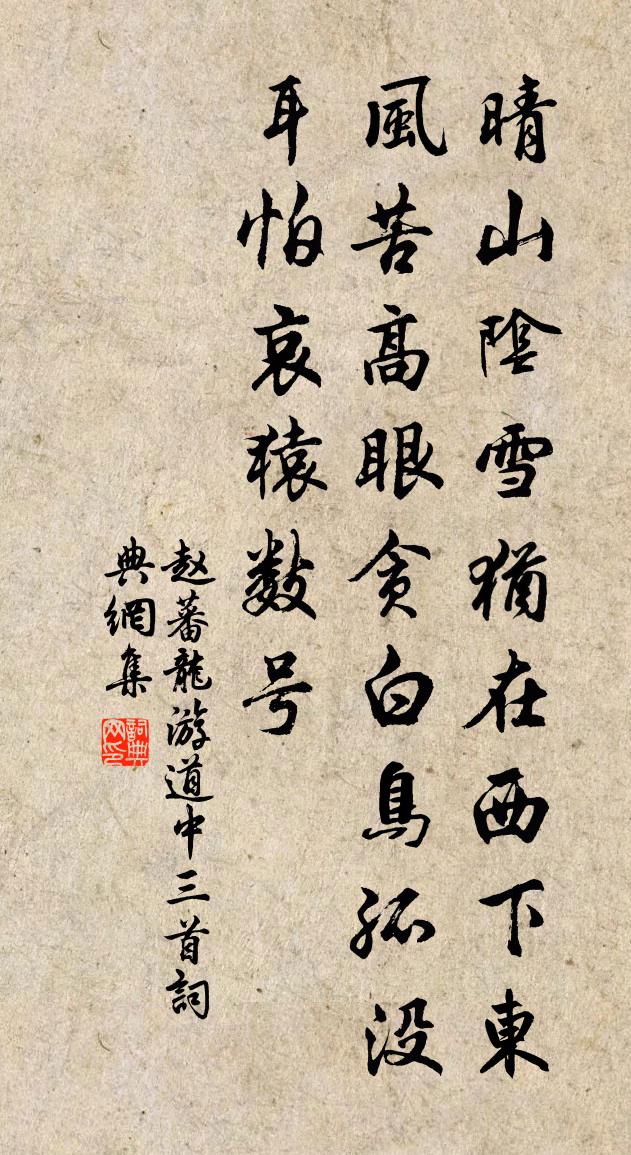 晴山陰雪猶在西下東
風苦高眼貪白鳥孤没
耳怕哀猿数号
赵蕃龍游道中三首詞
典網集
詞典
网印